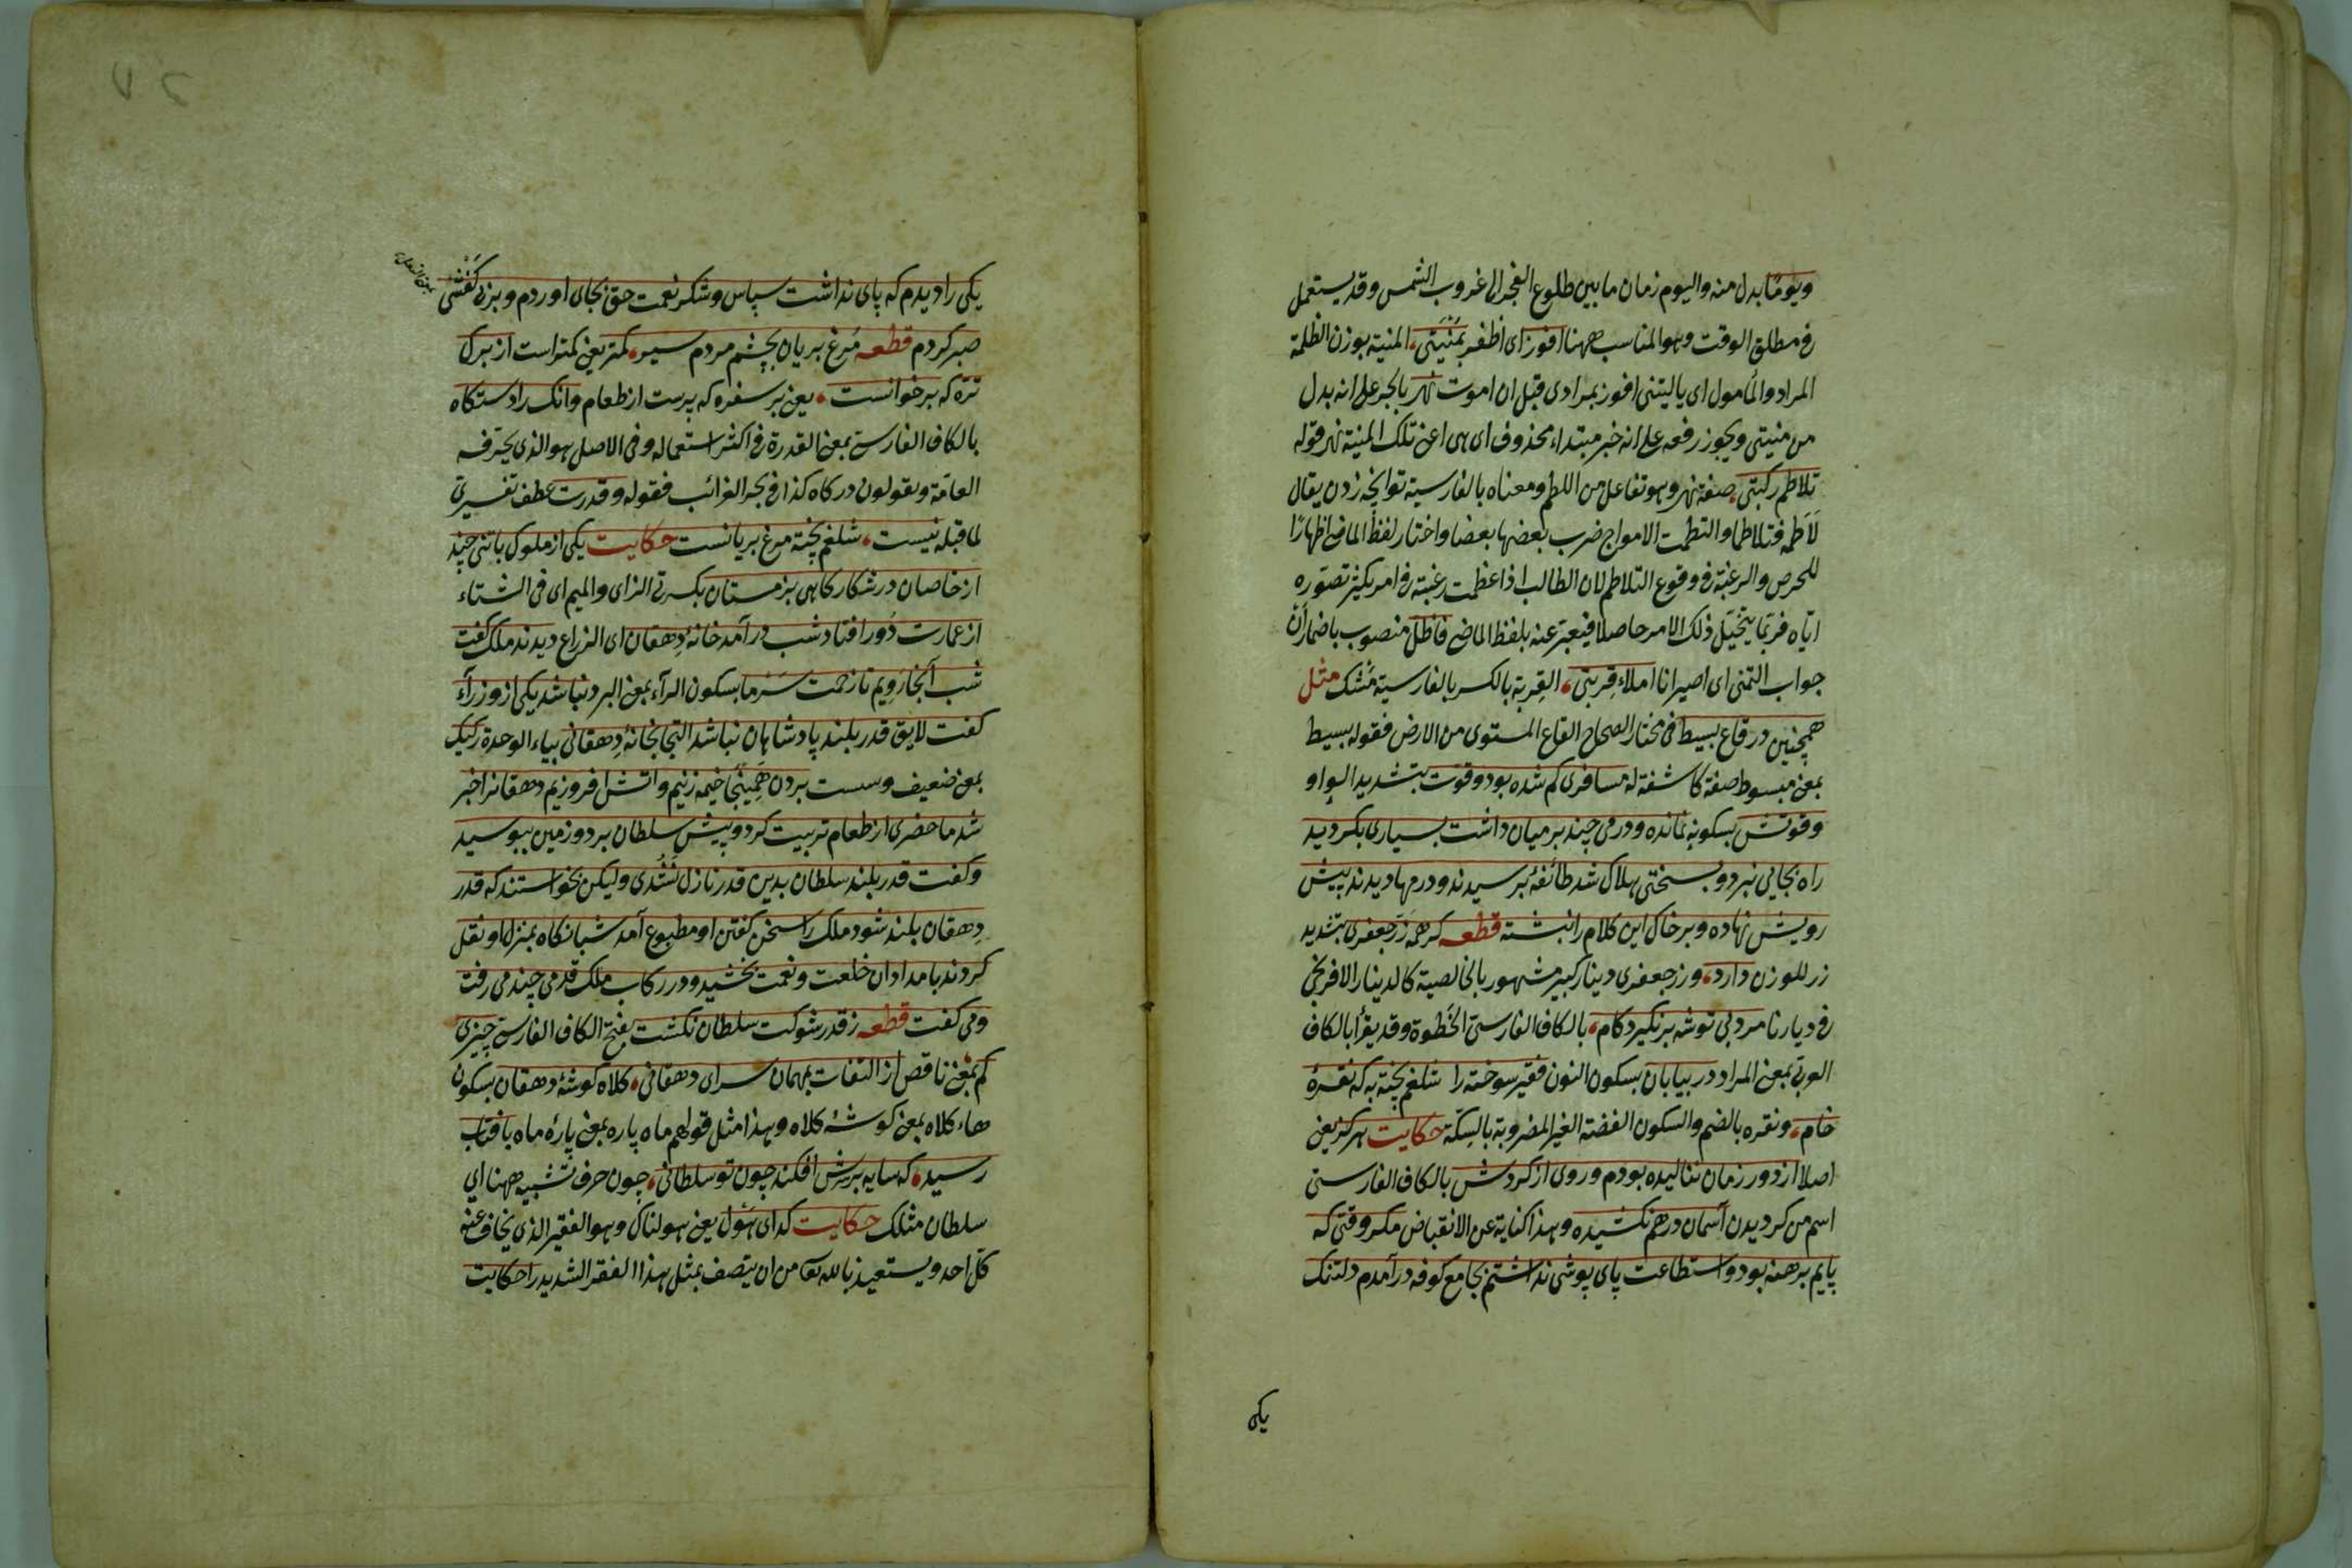 ويومًا بدل منه واليوم زمان ما بين طلوع الفجر الى غروب الشمس وقد يستعمل
في مطلق الوقت وهو المناسب ههنا افوز اى اظفر بمنيتى، المنية بوزن الظلمة
المراد والمأمول اى ياليتنى افوز بمرادى قبل ان اموت نهر بالجر على انه بدل
من منيتى ويجوز رفعه على انه خبر مبتداء محذوف اى هى اعنى تلك المنية نهر قوله
تلاطم ركبتى، صفة نهر وهو تفاعل من اللطم ومعناه بالفارسية توانچه زدن يقال
لاطمه فتلاطما والتطمت الامواج ضرب بعضها بعضا واختار لفظ الماضى اظهارًا
للحرص والرغبة فى وقوع التلاطم لان الطالب اذا عظمت رغبته فى امر يكثر تصوره
اياه فربما يتخيل ذلك الامر حاصلا فيعبر عنه بلفظ الماضى فاظل منصوب باضمار أن
جواب التمنى اى اصير انا املاء قربتى، القربة بالكسر بالفارسية مشك مثل
همچنين در قاع بسيط فى مختار الصحاح القاع المستوى من الارض فقوله بسيط
بمعنى مبسوط صفة كاشفة له مسافرى كم شده بود وقوت بتشديد الواو
وقوتش بسكونه نمانده ودرمى چند بر ميان داشت بسيارى بكرديد
راه بجايى نبرد وبسختى هلاك شد طائفهٔ برسيدند ودرمها ديدند پيش
رويش نهاده وبر خاك اين كلام را نبشته قطعه كر همه زر جعفرى بتشديد
زر للوزن دارد، وزر جعفرى دينار كبير مشهور بالخالصية كالدينار الافرنجى
فى ديارنا مرد بى توشه برنكيرد كام، بالكاف الفارسى الخطوة وقد يقرأ بالكاف
العربى بمعنى المراد در بيابان بسكون النون فقير سوخته را شلغم پخته به كه نقرهٔ
خام، ونقره بالضم والسكون الفضة الغير المضروبة بالسكة حكايت هركز يعنى
اصلا از دور زمان نناليده بودم وروى از كردش بالكاف الفارسى
اسم من كرديدن آسمان درهم نكشيده وهذا كناية عن الانقباض مكر وقتى كه
پايم برهنه بود واستطاعت پاى پوشى نداشتم بجامع كوفه درآمدم دلتنك
يكى
يكى را ديدم كه پاى نداشت سپاس وشكر نعمت حق بجاى اوردم وبر بى كفشى
صبر كردم قطعه مرغ بريان بچشم مردم سير، كمتر يعنى كمتر است از برك
تره كه بر خوانست، يعنى بر سفره كه پرست از طعام وانك را دستكاه
بالكاف الفارسى بمعنى القدرة فى اكثر استعماله وفى الاصل هو الذى يحرفه
العامة ويقولون دركاه كذا فى بحر الغرائب فقوله وقدرت عطف تفسيرى
لما قبله نيست، شلغم پخته مرغ بريانست حكايت يكى از ملوك باتنى چند
از خاصان در شكاركاهى بزمستان بكسرتى الزاى والميم اى فى الشتاء
از عمارت دور افتاد شب درآمد خانهٔ دهقان اى الزراع ديدند ملك كفت
شب آنجا رويم تا زحمت سرما بسكون الرآء بمعنى البرد نباشد يكى از وزرآء
كفت لايق قدر بلند پادشاهان نباشد التجا بخانهٔ دهقانى بياء الوحدة ركيك
بمعنى ضعيف وسست بردن همينجا خيمه زنيم واتش افروزيم دهقانرا خبر
شد ماحضرى از طعام تربيت كرد وپيش سلطان برد وزمين ببوسيد
وكفت قدر بلند سلطان بدين قدر نازل نشدى وليكن نخواستند كه قدر
دهقان بلند شود ملك را سخن كفتن او مطبوع آمد شبانكاه بمنزل او نقل
كردند بامدادان خلعت ونعمت بخشيد ودر ركاب ملك قدمى چند مى رفت
ومى كفت قطعه ز قدر شوكت سلطان نكشت بفتح الكاف الفارسى چيزى
كم بمعنى ناقص از التفات بمهمان سراى دهقانى، كلاه كوشهٔ دهقان بسكون
هاء كلاه بمعنى كوشهٔ كلاه وهذا مثل قولهم ماه پاره بمعنى پارهٔ ماه بافتاب
رسيد، كه سايه بر سرش افكند چون تو سلطانى، چون حرف تشبيه ههنا اى
سلطان مثلك حكايت كداى هول يعنى هولناك وهو الفقير الذى يخاف عنه
كل احد ويستعيذ بالله تعا من ان يتصف بمثل هذا الفقر الشديد را حكايت